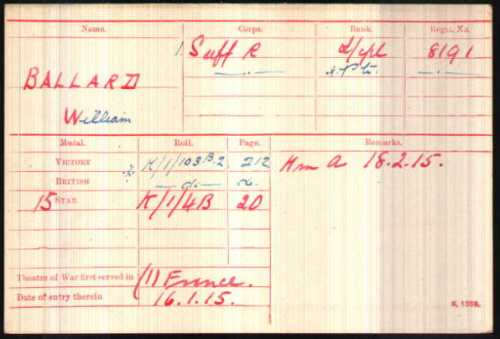 Name. Corps. Rank. Regtl. No.
1. Suff R L/Cpl 8191
BALLARD —..— x. Pte. —..—
William
Medal. Roll. Page. Remarks.
VICTORY x K/1/103.B.2 212
BRITISH —do.— do.
15 STAR K/1/4B 20
18.2.15.
Theatre of War first served in (1) France.
Date of entry therein 16.1.15.
K. 1380.